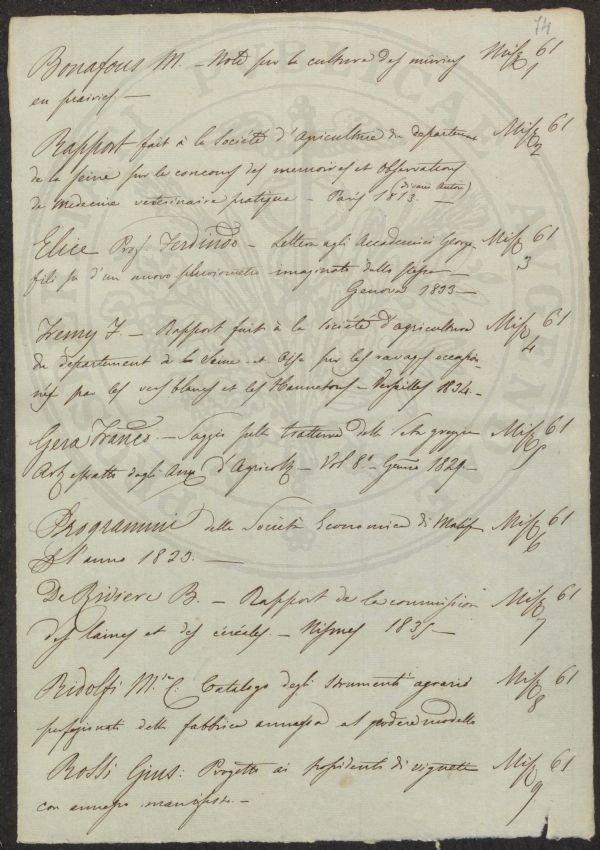 74
Bonafous M. - Note sur la culture des mûriers Misc 61
en prairies. - 1
Rapport fait à la Société d'Agriculture du departemen Misc 61
de la Seine sur le concours des memoires et observations 2
de medecine veterinaire pratique - Paris 1813. - (di varii Autori)
Elice Prof. Ferdindo - Lettera agli Accademici Georgo- Misc 61
fili su d'un nuovo pluviometro imaginato dallo stesso - 3
Genova 1833 -
Fremy F. - Rapport fait à la Société d'agriculture Misc 61
du departement de la Seine et Oise sur les ravages occasio- 4
nés par les vers blancs et les Hannetons - Versailles 1834. -
Gera Franco - Saggio sulla trattura della Seta greggia Misc 61
Art. estratto dagli Ann. d'Agricolt. - Vol 8° - Genn. 1829. - 5
Programmi della Società Economica di Misc 61
l'anno 1833. - 6
De Riviere B. - Rapport de la commission Misc 61
des laines et des céréales. - Nismes 1835 - 7
Ridolfi M.se C. Catalogo degli Strumenti agrarii Misc 61
perfezionati della fabbrica annessa al podere modello 8
Rossi Gius: Progetto ai possidenti di vigneti Misc 61
con annesso manifesto. - 9